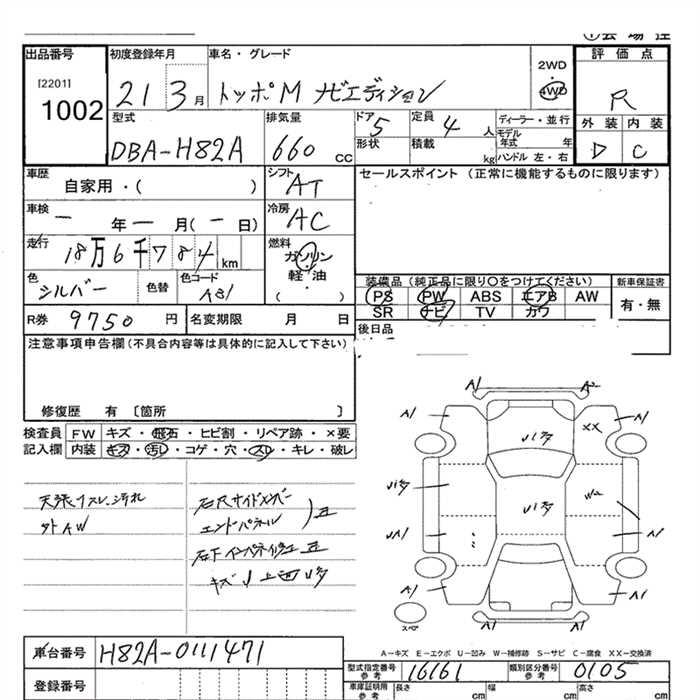 出品番号 初度登録年月 車名・グレード 評価点
[2201]
1002
21 3月 トッポM ナビエディション
2WD
4WD
R
型式 排気量 ドア 定員 ディーラー・並行 外装 内装
DBA-H82A 660 cc 5 4 人
モデル年式 年
形状 積載 kg ハンドル 左・右
D C
車歴 シフト セールスポイント (正常に機能するものに限ります)
自家用・( ) AT
車検 冷房
ー年ー月(ー日) AC
走行 燃料
18万6千784km ガソリン
軽・油
( )
色 色替 色コード
シルバー A31
装備品 (純正品に限り○をつけてください) 新車保証書
PS PW ABS エアB AW 有・無
SR ナビ TV カワ
R券 9750 円 名変期限 月 日
後日品
注意事項申告欄(不具合内容等は具体的に記入して下さい)
修復歴 有 〔箇所 〕
検査員 FW キズ・飛石・ヒビ割・リペア跡・×要
記入欄 内装 キズ・汚レ・コゲ・穴・スレ・キレ・破レ
天張リスレ、汚れ
外AW
右尺サイドメンバー
エンドパネル
A1 A2
A1 U1多 XX A1
U1多 U1多 W2
UA1 A1
A1 A1
A1 A1
スペア
A-キズ E-エクボ U-凹み W-補修跡 S-サビ C-腐食 XX-交換済
車台番号 H82A-0111471
登録番号
型式指定番号 参考 16161 類別区分番号 参考 0105
車庫証明用 参考 長さ cm 幅 cm 高さ cm